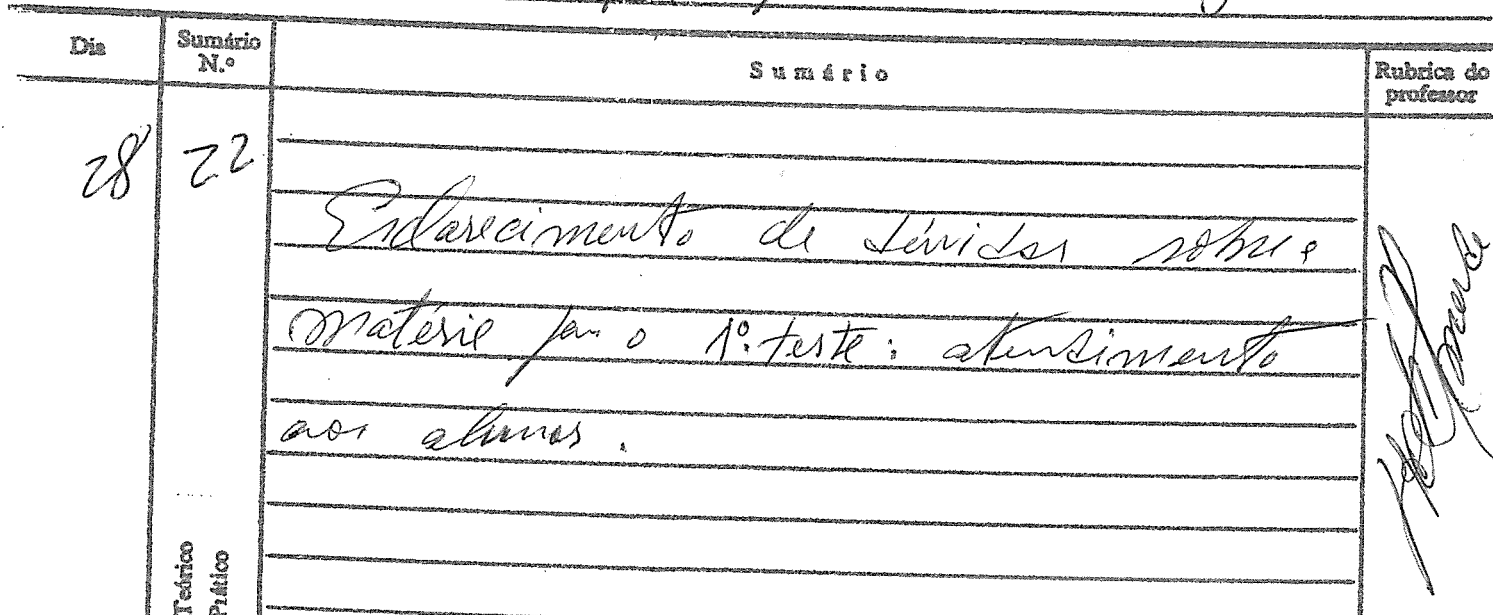 Dia Sumário N.º Sumário Rubrica do professor
28 22
Esclarecimento de dúvidas sobre a
matéria para o 1º teste: atendimento
aos alunos.
Teórico
Prático